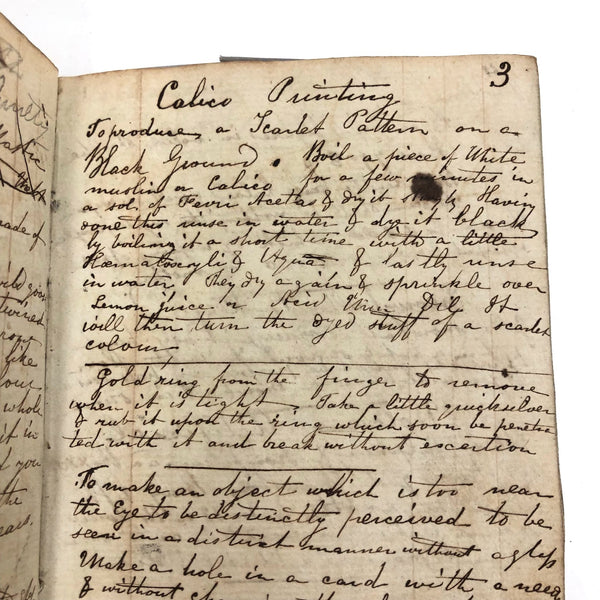 3
Calico Printing
To produce a Scarlet Pattern on a
Black Ground. Boil a piece of White
muslin or Calico for a few minutes in
a sol. of Ferri Acetas & dry it Having
done this rinse in water & dye it black
by boiling it a short time with a little
Hæmatoxyli & Aqua & lastly rinse
in water They dry again & sprinkle over
Lemon juice or Acid Dil. It
will then turn the dyed stuff of a scarlet
colour,
Gold ring from the finger to remove
when it is tight. Take a little quicksilver
& rub it upon the ring which soon be penetra
ted with it and break without escertion
To make an object which is too near
the Eye to be distinctly perceived to be
seen in a distinct manner without a glass
Make a hole in a card with a need
& without